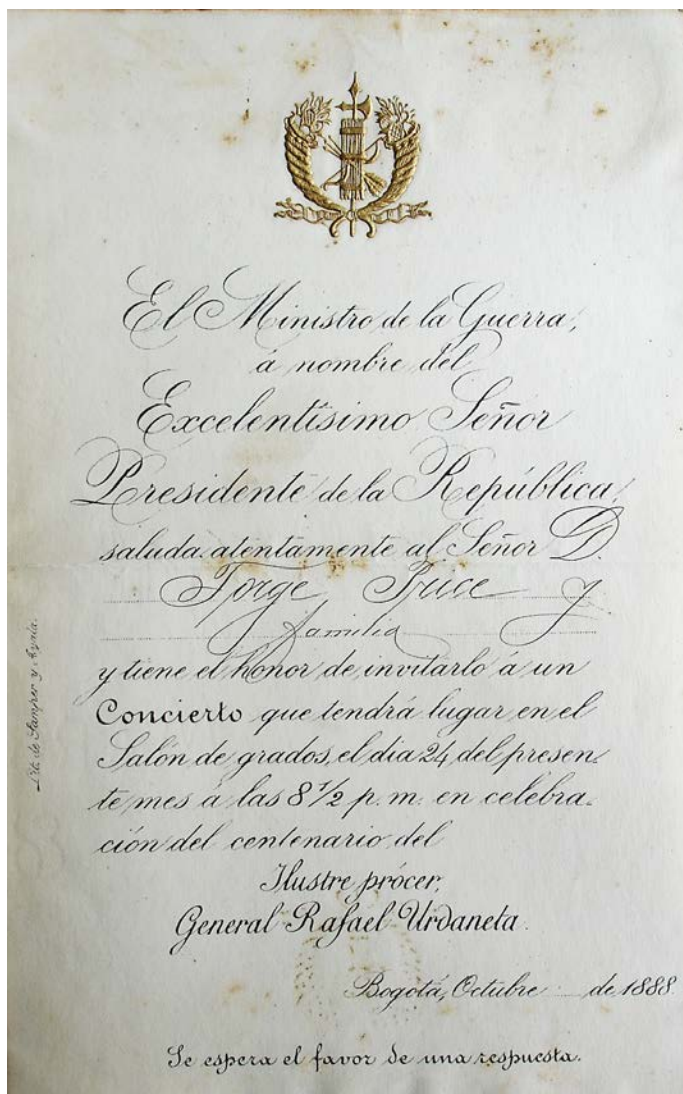 El Ministro de la Guerra,
á nombre del
Excelentísimo Señor
Presidente de la República,
saluda atentamente al Señor D.
Jorge Price y
familia
y tiene el honor de invitarlo á un
Concierto que tendrá lugar en el
Salón de grados, el dia 24 del presen-
te mes á las 8 1/2 p. m. en celebra-
ción del centenario del
Ilustre prócer,
General Rafael Urdaneta.
Bogotá, Octubre de 1888
Se espera el favor de una respuesta.
Lit. de Samper y Ayala.